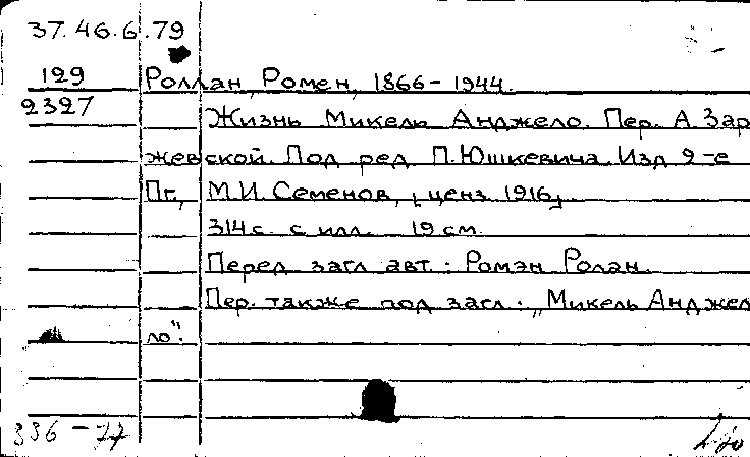 37.46.6.79
129 Роллан, Ромен, 1866-1944.
2327 Жизнь Микель Анджело. Пер. А. Зар
жевской. Под ред. П. Юшкевича. Изд. 2-е
Пг., М.И. Семенов, [ценз. 1916]
314 с. с илл. 19 см.
Перед загл. авт.: Ромэн Ролан.
Пер. также под загл.: „Микель Анджел
ло".
336-77